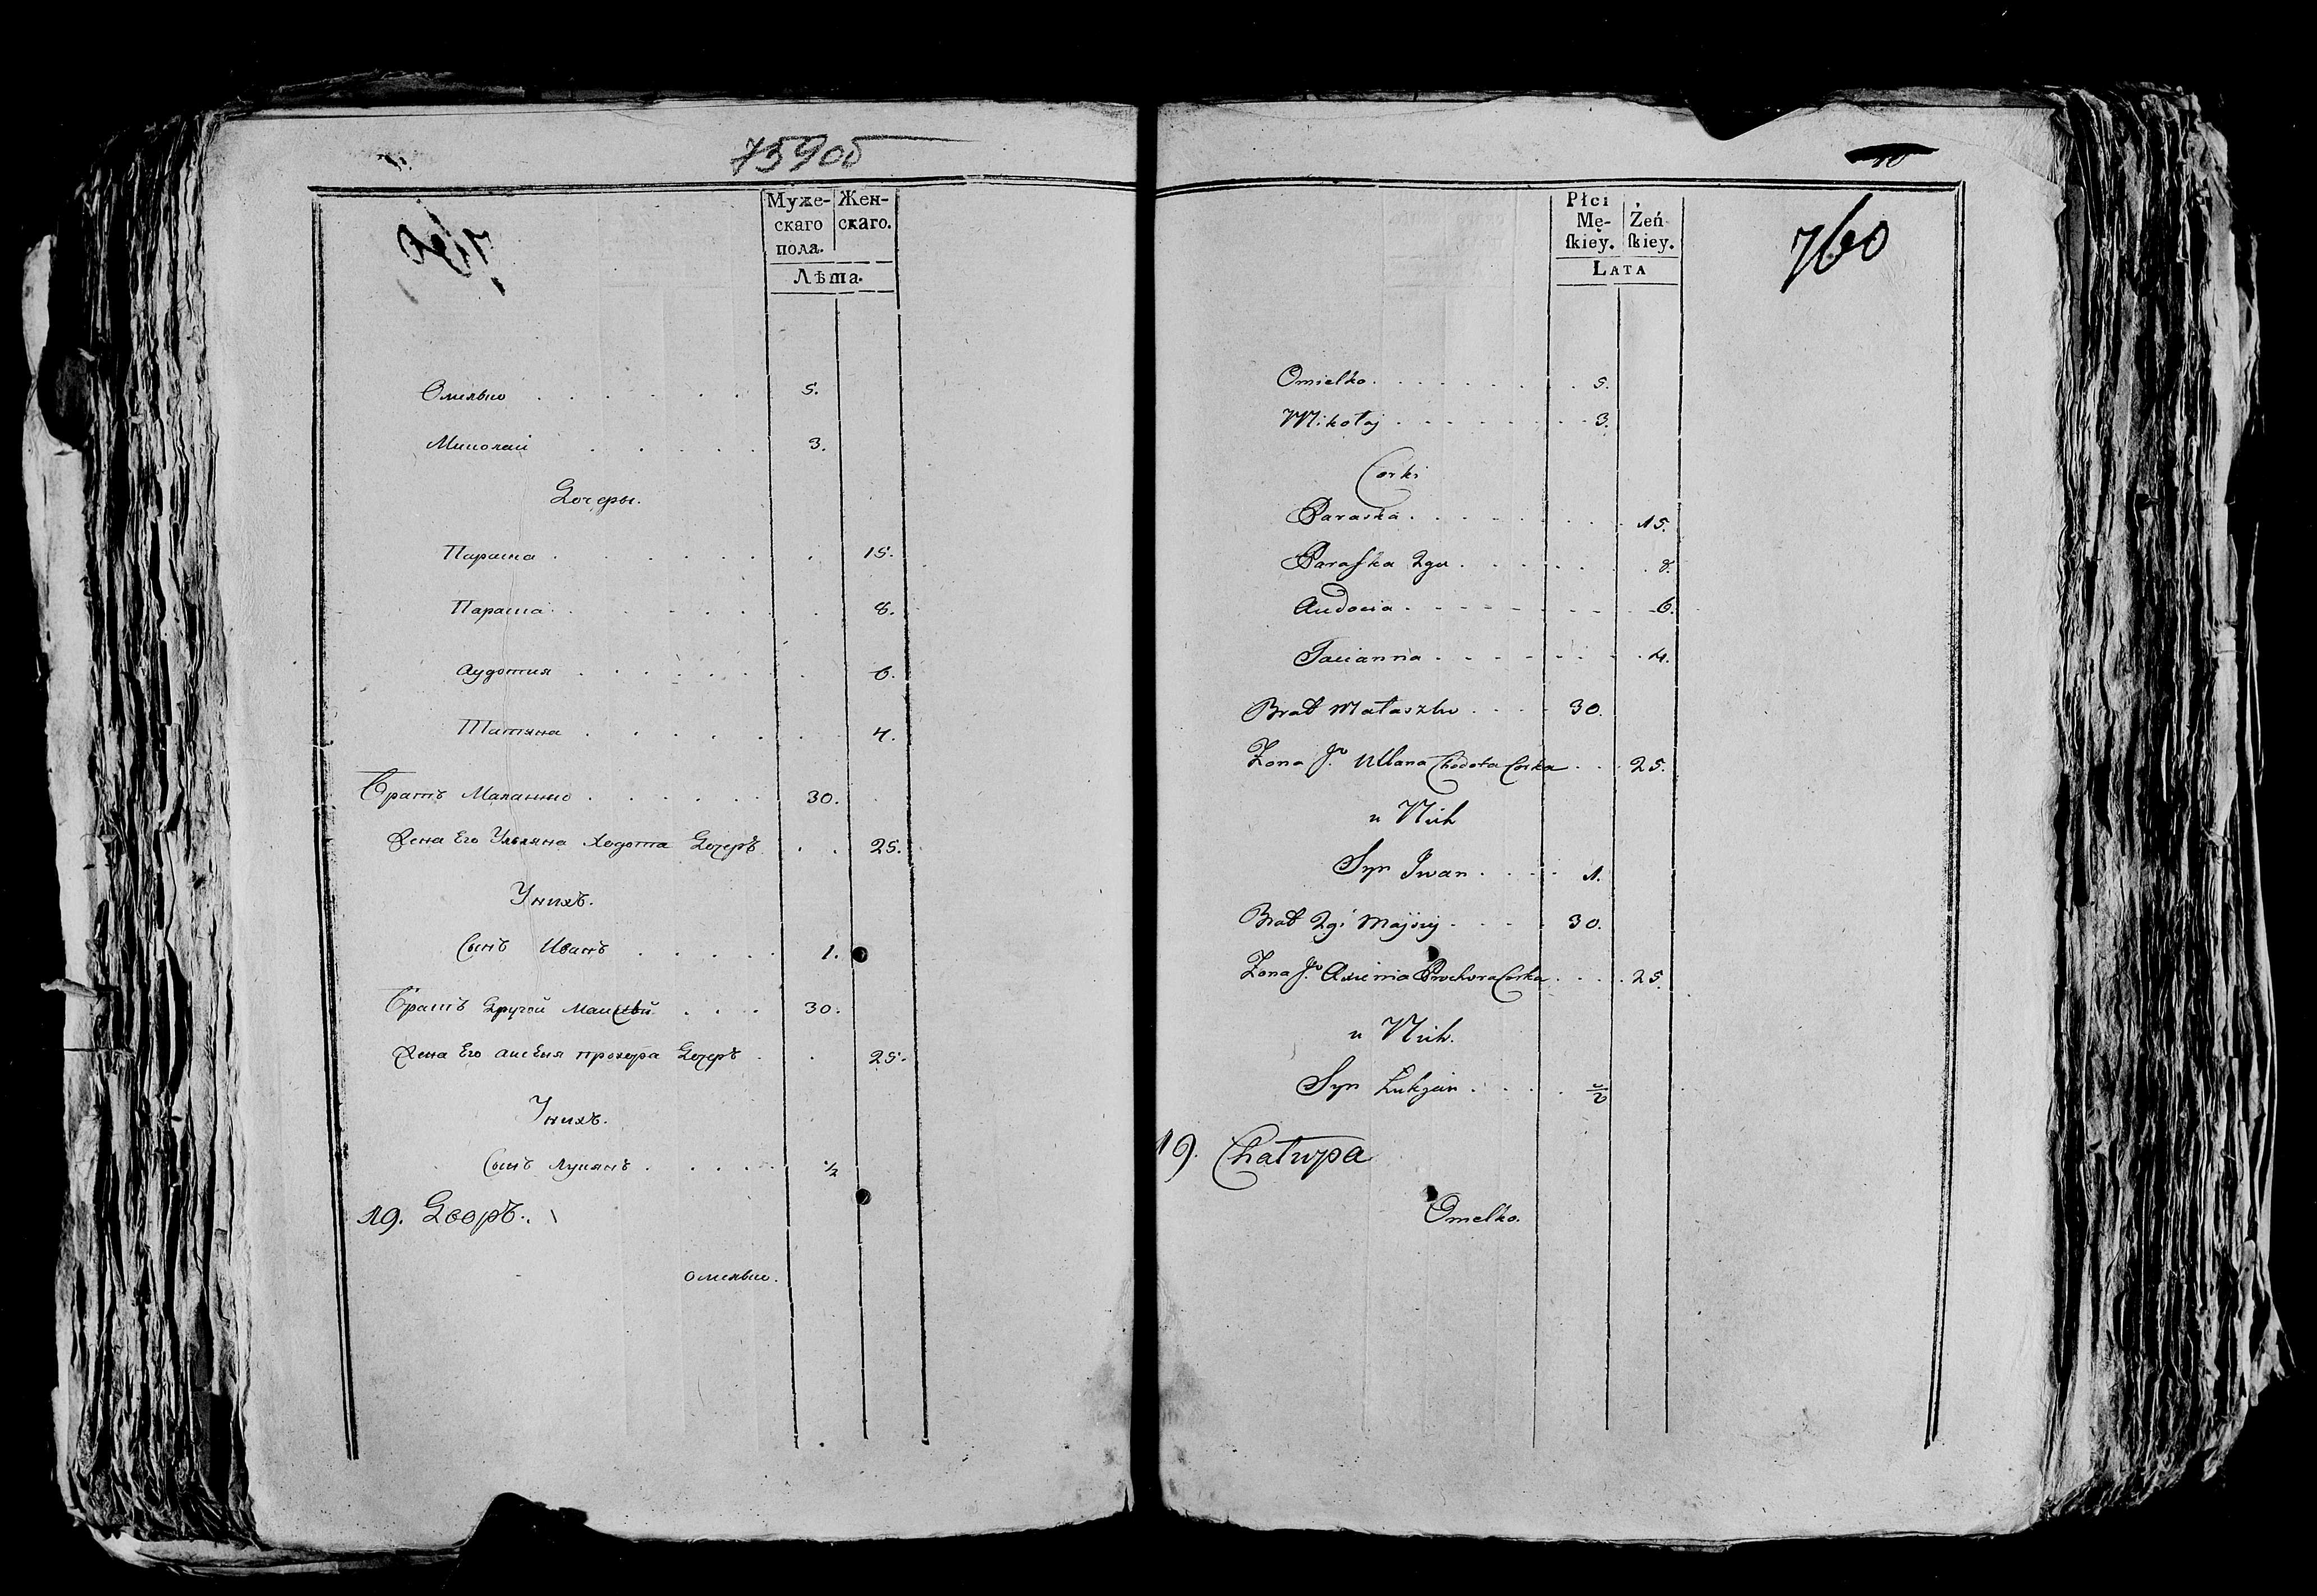 759об
Муже-
скаго
пола.
Жен-
скаго.
Лѣта.
Омѣлько 5.
Миколай 3.
Дочери.
Параска 15.
Параска 8.
Аудотия 6.
Татяна 4.
Братъ Малашко 30.
Жена Его Ульяна Ходота Дочеръ 25.
У нихъ.
Сынъ Иванъ 1.
Братъ Другой Майсѣй 30.
Жена Его Аксеня Прохора Дочеръ 25.
У нихъ.
Сынъ Лукянъ 1/2
19. Дворъ.
Омелько.
10
760
Płci
Mę-
skiey.
Żeń
skiey.
LATA
Omielko 5.
Mikołaj 3.
Corki
Paraska 15.
Paraska 2ga 8.
Audocia 6.
Tacianna 4.
Brat Małaszko 30.
Zona Jo Ullana Chodota Corka 25.
u Nich
Syn Jwan 1.
Brat 2gi Majsiej 30.
Zona Jo Axienia Prochora Corka 25.
u Nich.
Syn Łukjan 1/2
19. Chałupa
Omelko.